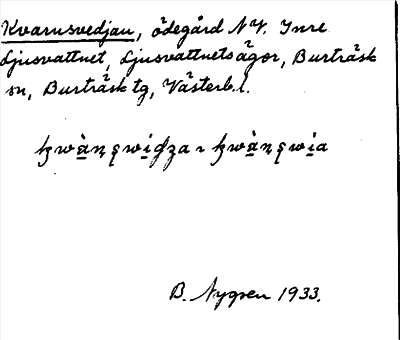 Kvarnsvedjan, ödegård NV. Inre
Ljusvattnet, Ljusvattnets ägor, Burträsk
sn, Burträsk tg, Västerb.l.
B. Nygren 1933.